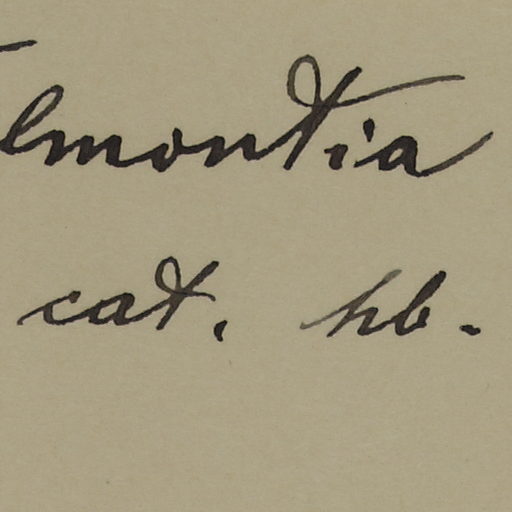 lmontia
cat. hb.